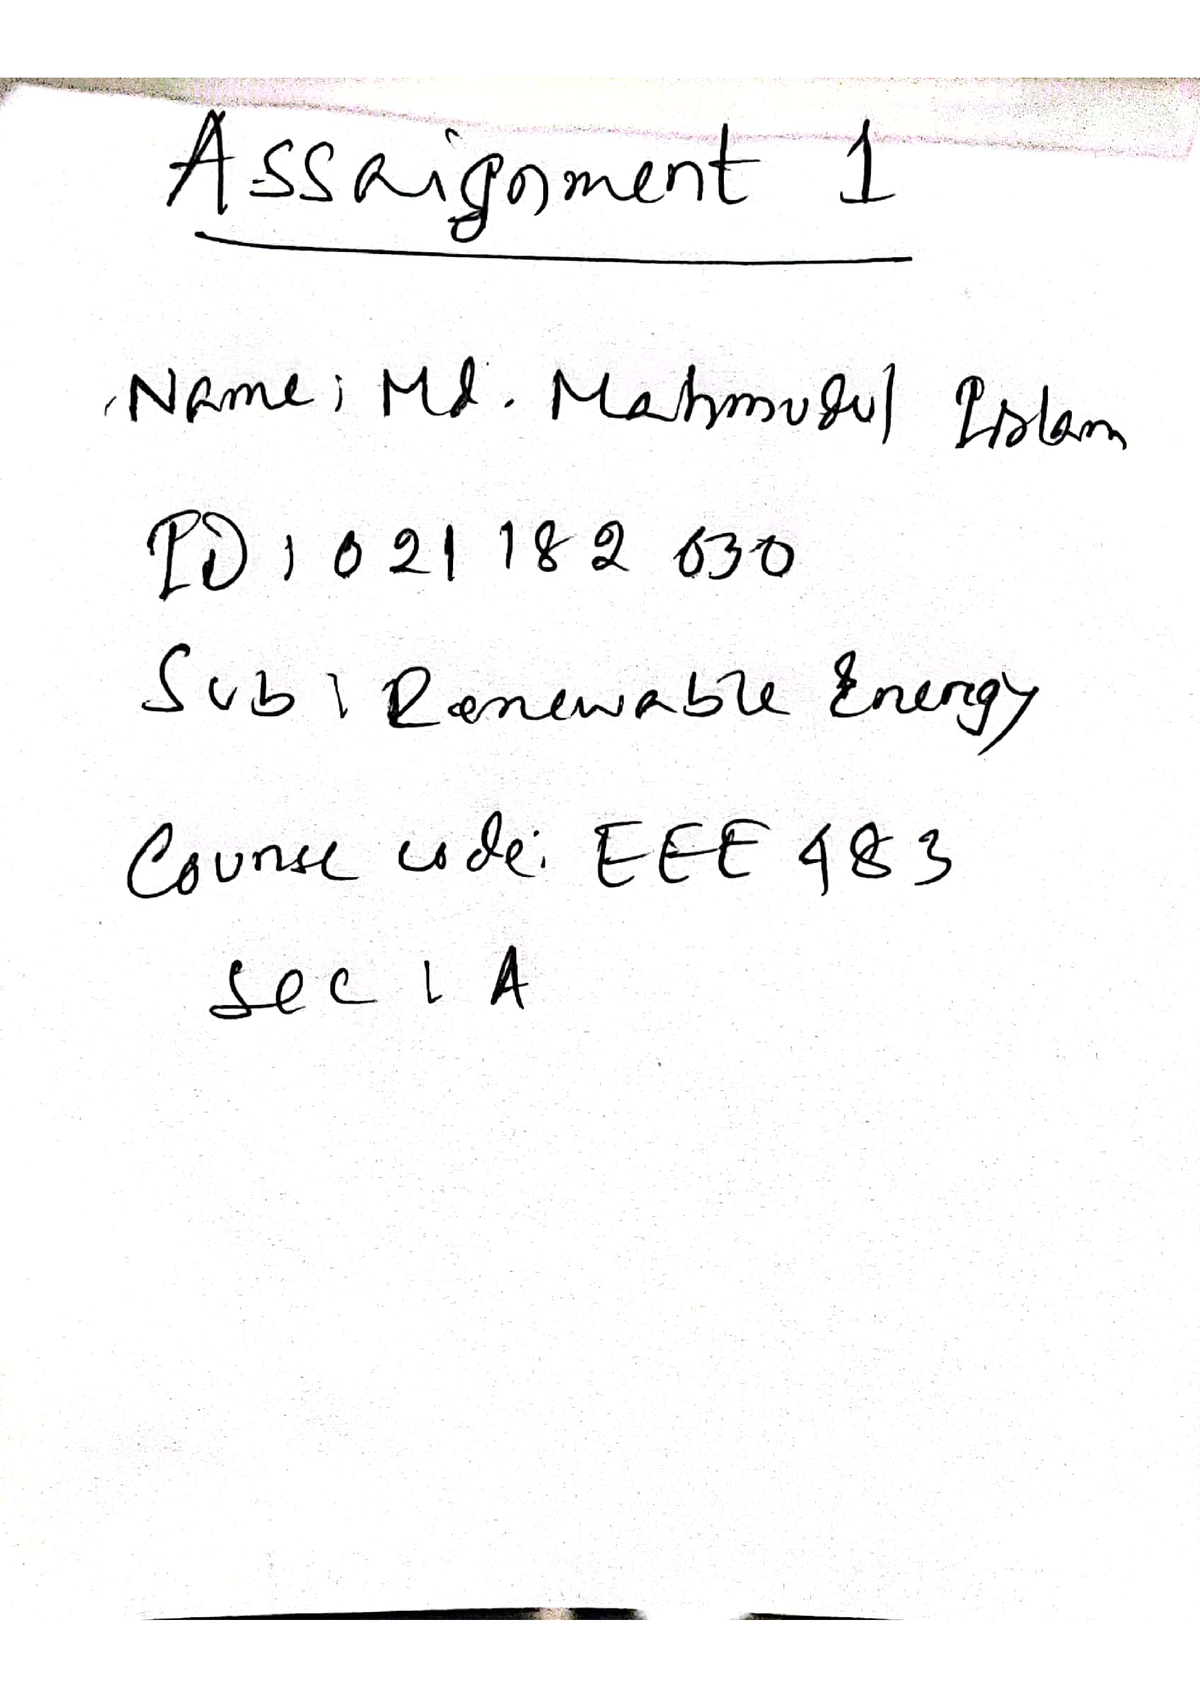 Assaignment 1
Name: Md. Mahmudul Islam
ID: 021 182 030
Sub: Renewable Energy
Course code: EEE 483
Sec: A